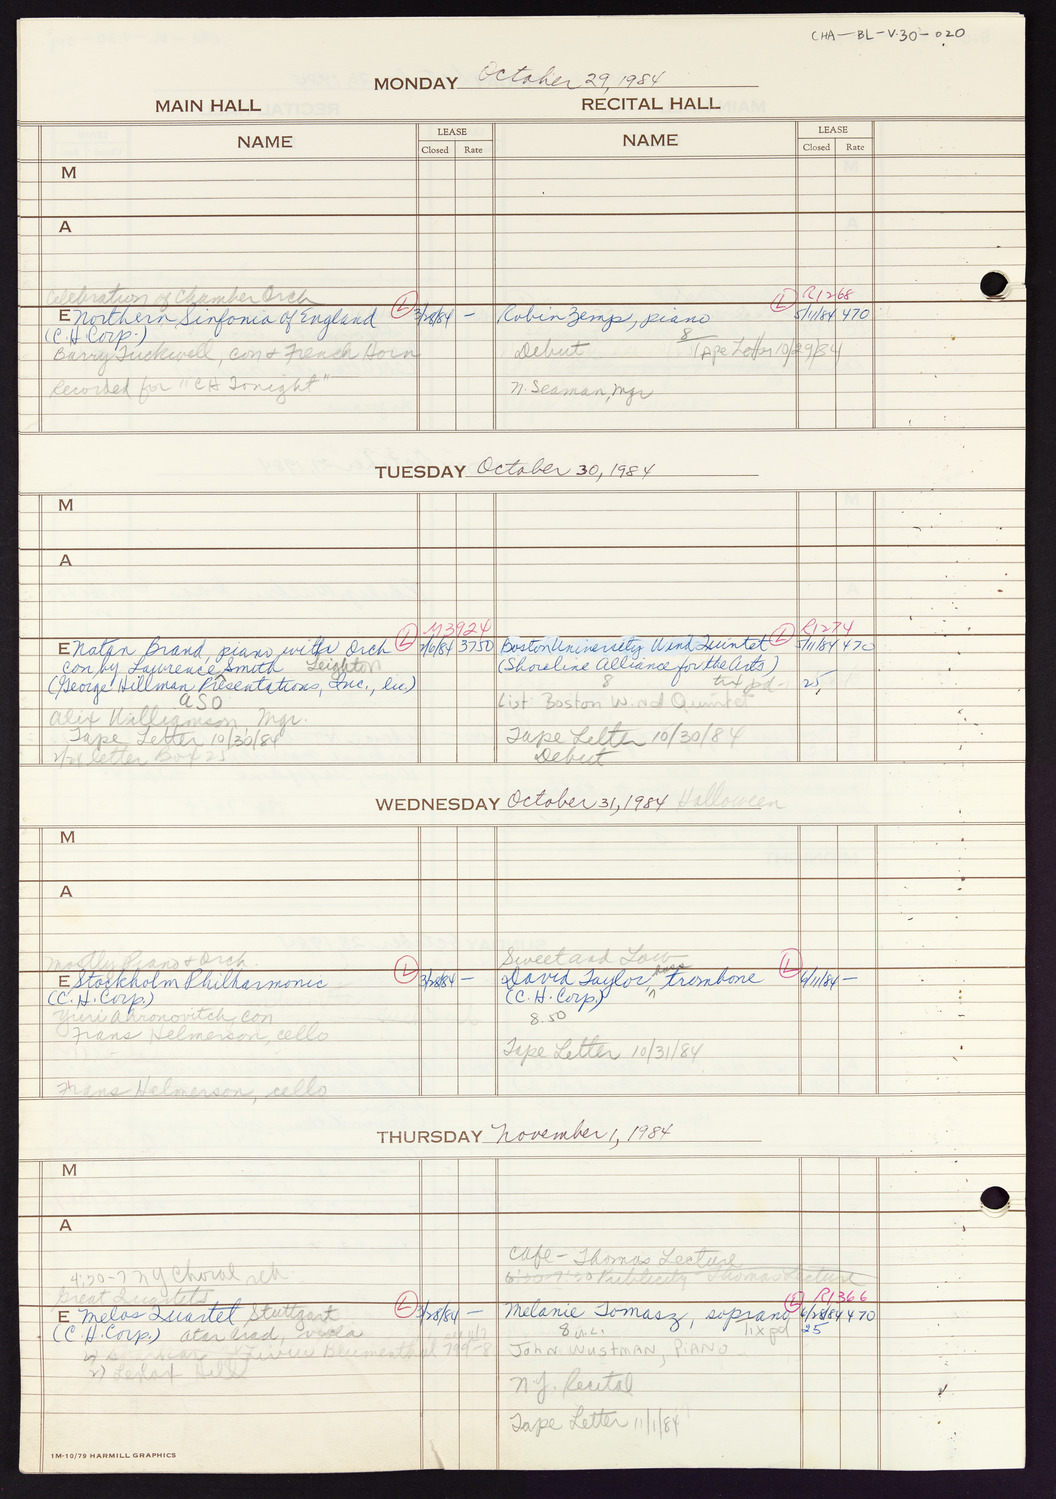 CHA-BL-V.30-020
MONDAY October 29, 1984
MAIN HALL RECITAL HALL
NAME LEASE Closed Rate NAME LEASE Closed Rate
M
A
Celebration of Chamber Orch
E Northern Sinfonia of England L 3/28/84 —
(C.H. Corp.)
Barry Tuckwell, con + French Horn
Recorded for "CH Tonight"
L R1268
Robin Zemp, piano 5/11/84 470
8
Debut Tape Letter 10/29/84
N. Seaman, Mgr
TUESDAY October 30, 1984
M
A
L M3924
E Natan Brand, piano with Orch 2/6/84 3750
con by Lawrence Leighton Smith
(George Hillman Presentations, Inc., lu)
ASO
Alix Williamson, Mgr.
Tape Letter 10/30/84
letter Box 25
L R1274
Boston University Wind Quintet 5/11/84 470
(Shoreline Alliance for the Arts)
8 tix pd - 25
List: Boston Wind Quintet
Tape Letter 10/30/84
Debut
WEDNESDAY October 31, 1984 Halloween
M
A
Mostly Piano + Orch.
E Stockholm Philharmonic L 3/28/84 —
(C.H. Corp.)
Yuri Ahronovitch, con
Frans Helmerson, cello
Frans Helmerson, cello
Sweet and Low
David Taylor, bass trombone L 6/11/84 —
(C.H. Corp.)
8.50
Tape Letter 10/31/84
THURSDAY November 1, 1984
M
A
4:30-7 NY Choral reh.
Great Quartets
E Melos Quartet Stuttgart L 3/28/84 —
(C.H. Corp.) Atar Arad, viola
Blumenthal
Café - Thomas Lecture
6:30-7:30 Publicity - Thomas Lecture
L R1366
Melanie Tomasz, soprano 6/28/84 470
8 tix pd 25
John Wustman, PIANO
N.Y. Recital
Tape Letter 11/1/84
1M-10/79 HARMILL GRAPHICS